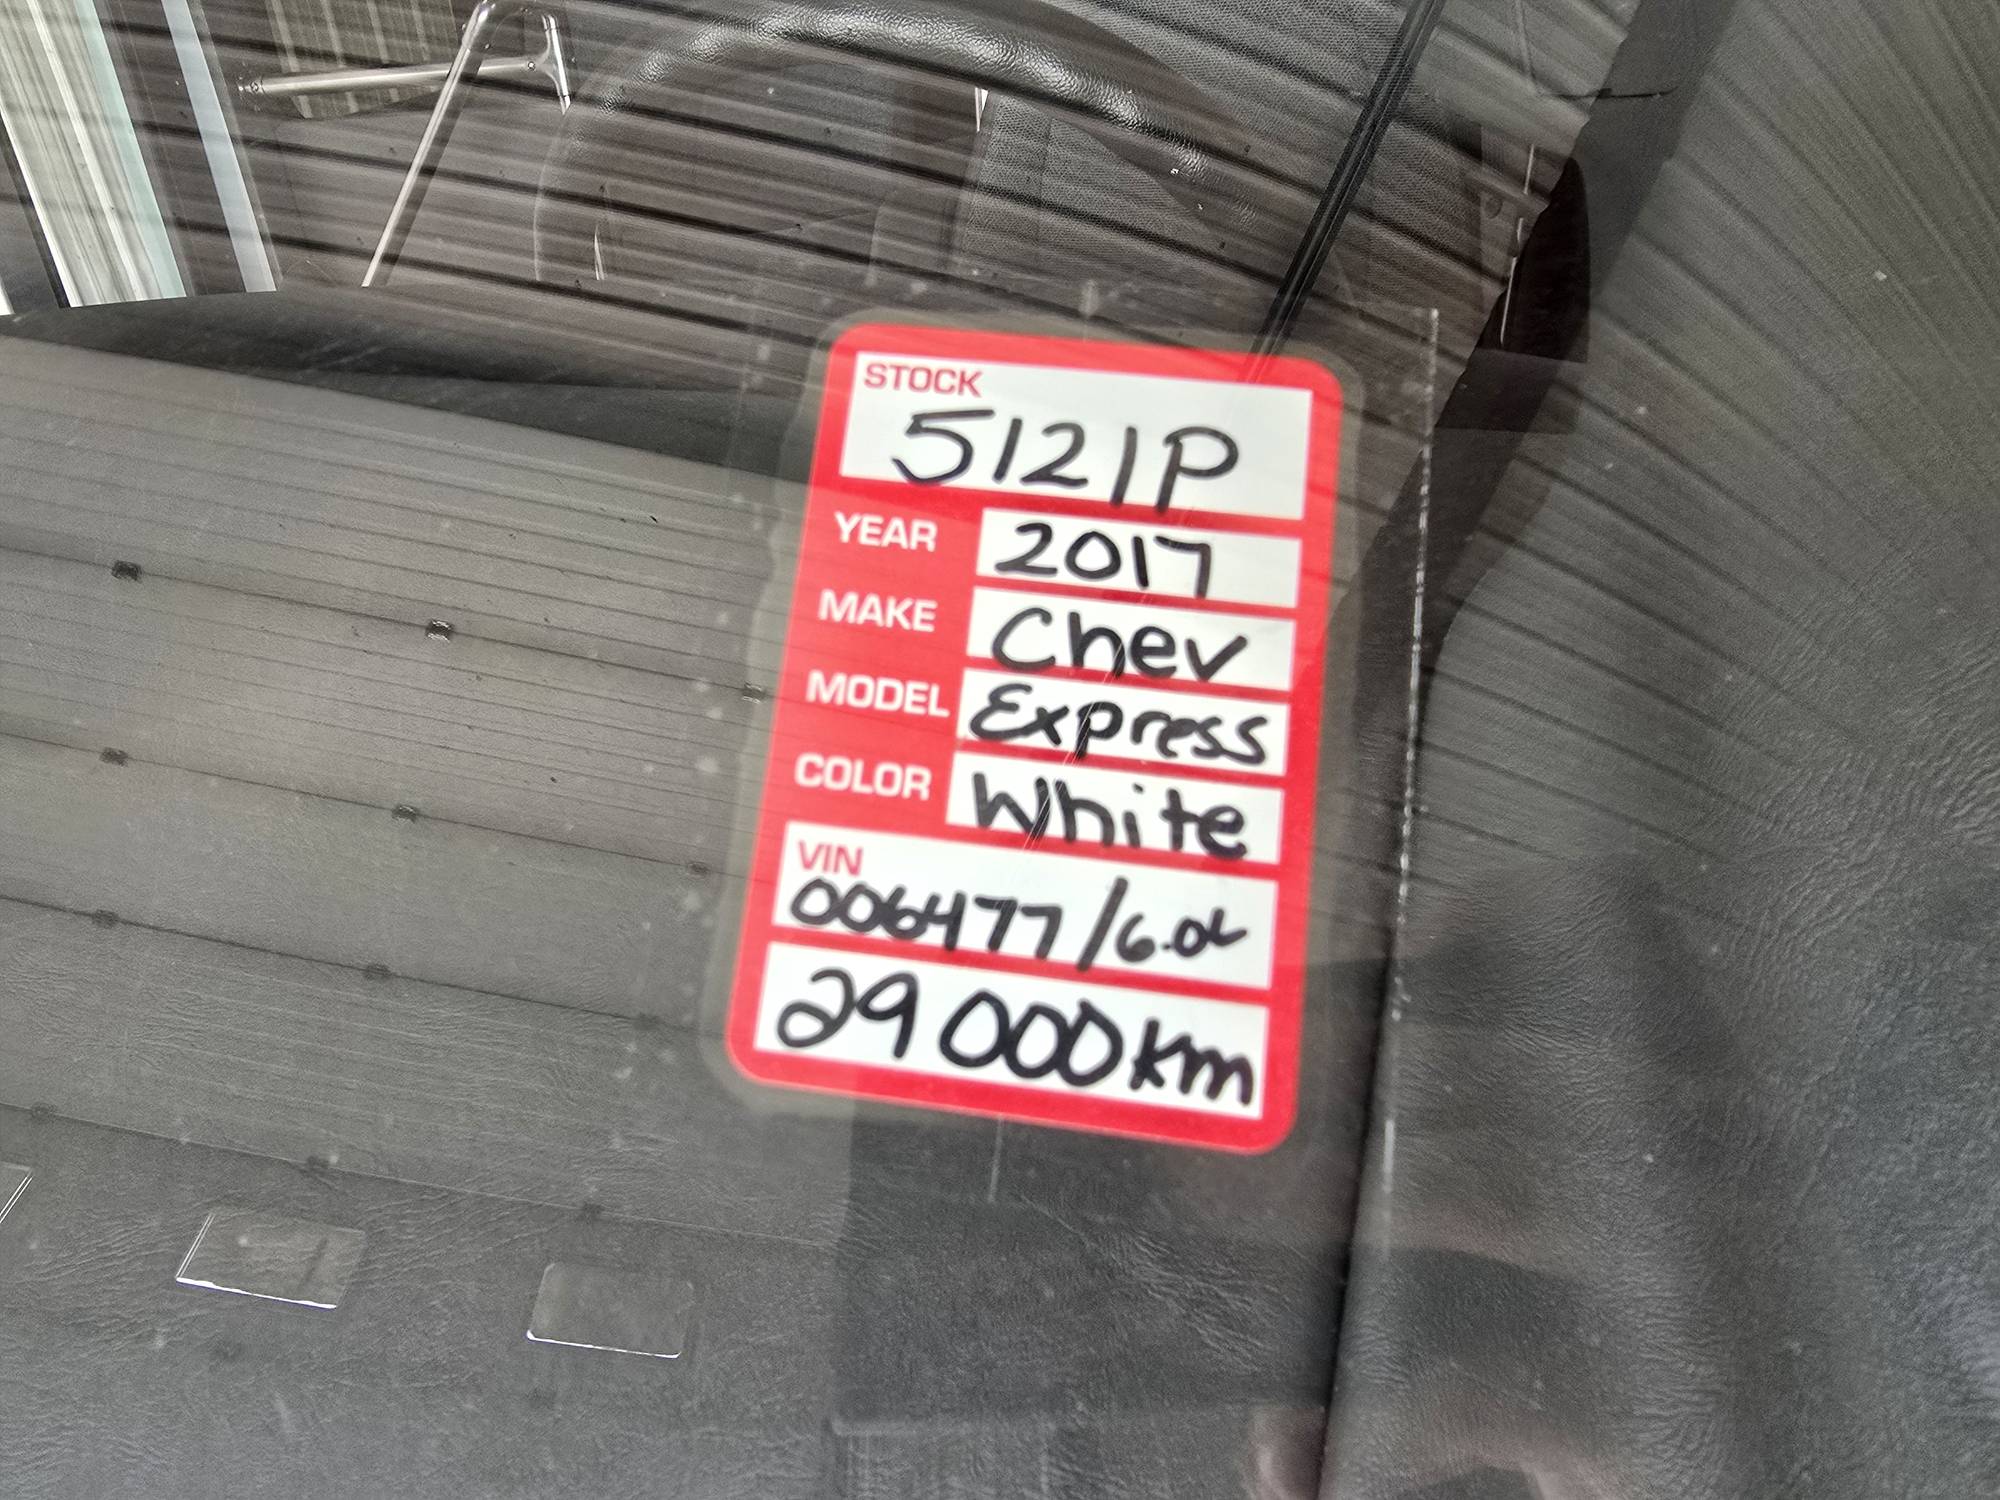 STOCK
5121P
YEAR 2017
MAKE Chev
MODEL Express
COLOR White
VIN
006477/6.0L
29 000 km